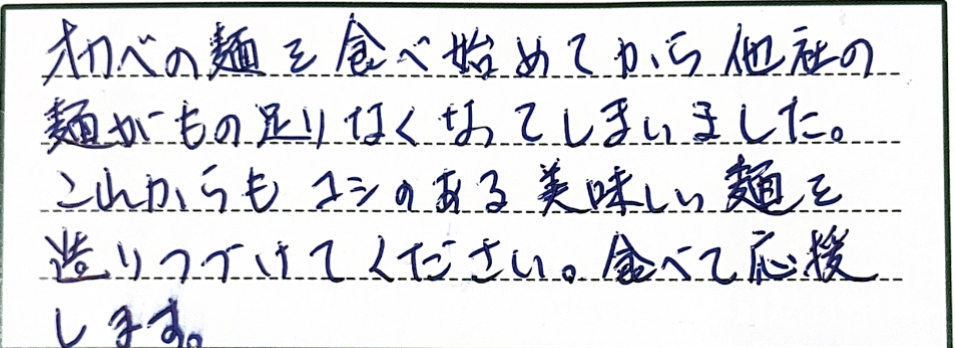 オカベの麺を食べ始めてから他社の
麺がもの足りなくなってしまいました。
これからもコシのある美味しい麺を
造りつづけてください。食べて応援
します。